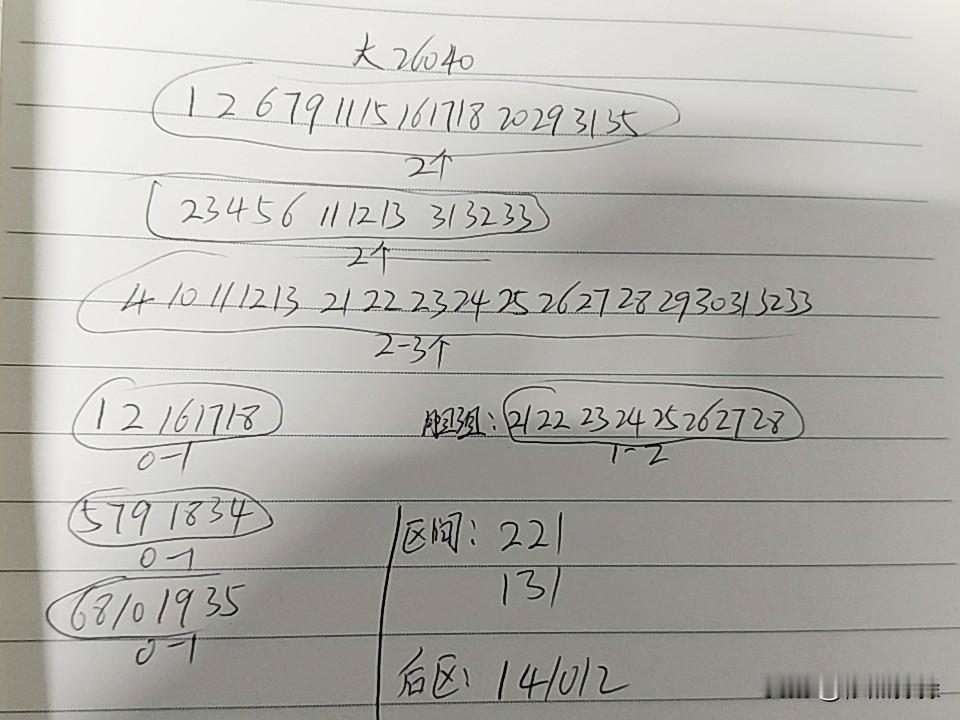 大26040
1 2 6 7 9 11 15 16 17 18 20 29 31 35
2个
2 3 4 5 6 11 12 13 31 32 33
2个
4 10 11 12 13 21 22 23 24 25 26 27 28 29 30 31 32 33
2-3个
1 2 16 17 18
0-1
胆组: 21 22 23 24 25 26 27 28
1-2
5 7 9 18 34
0-1
6 8 10 19 35
0-1
区间: 221
131
后区: 1 4 10 12